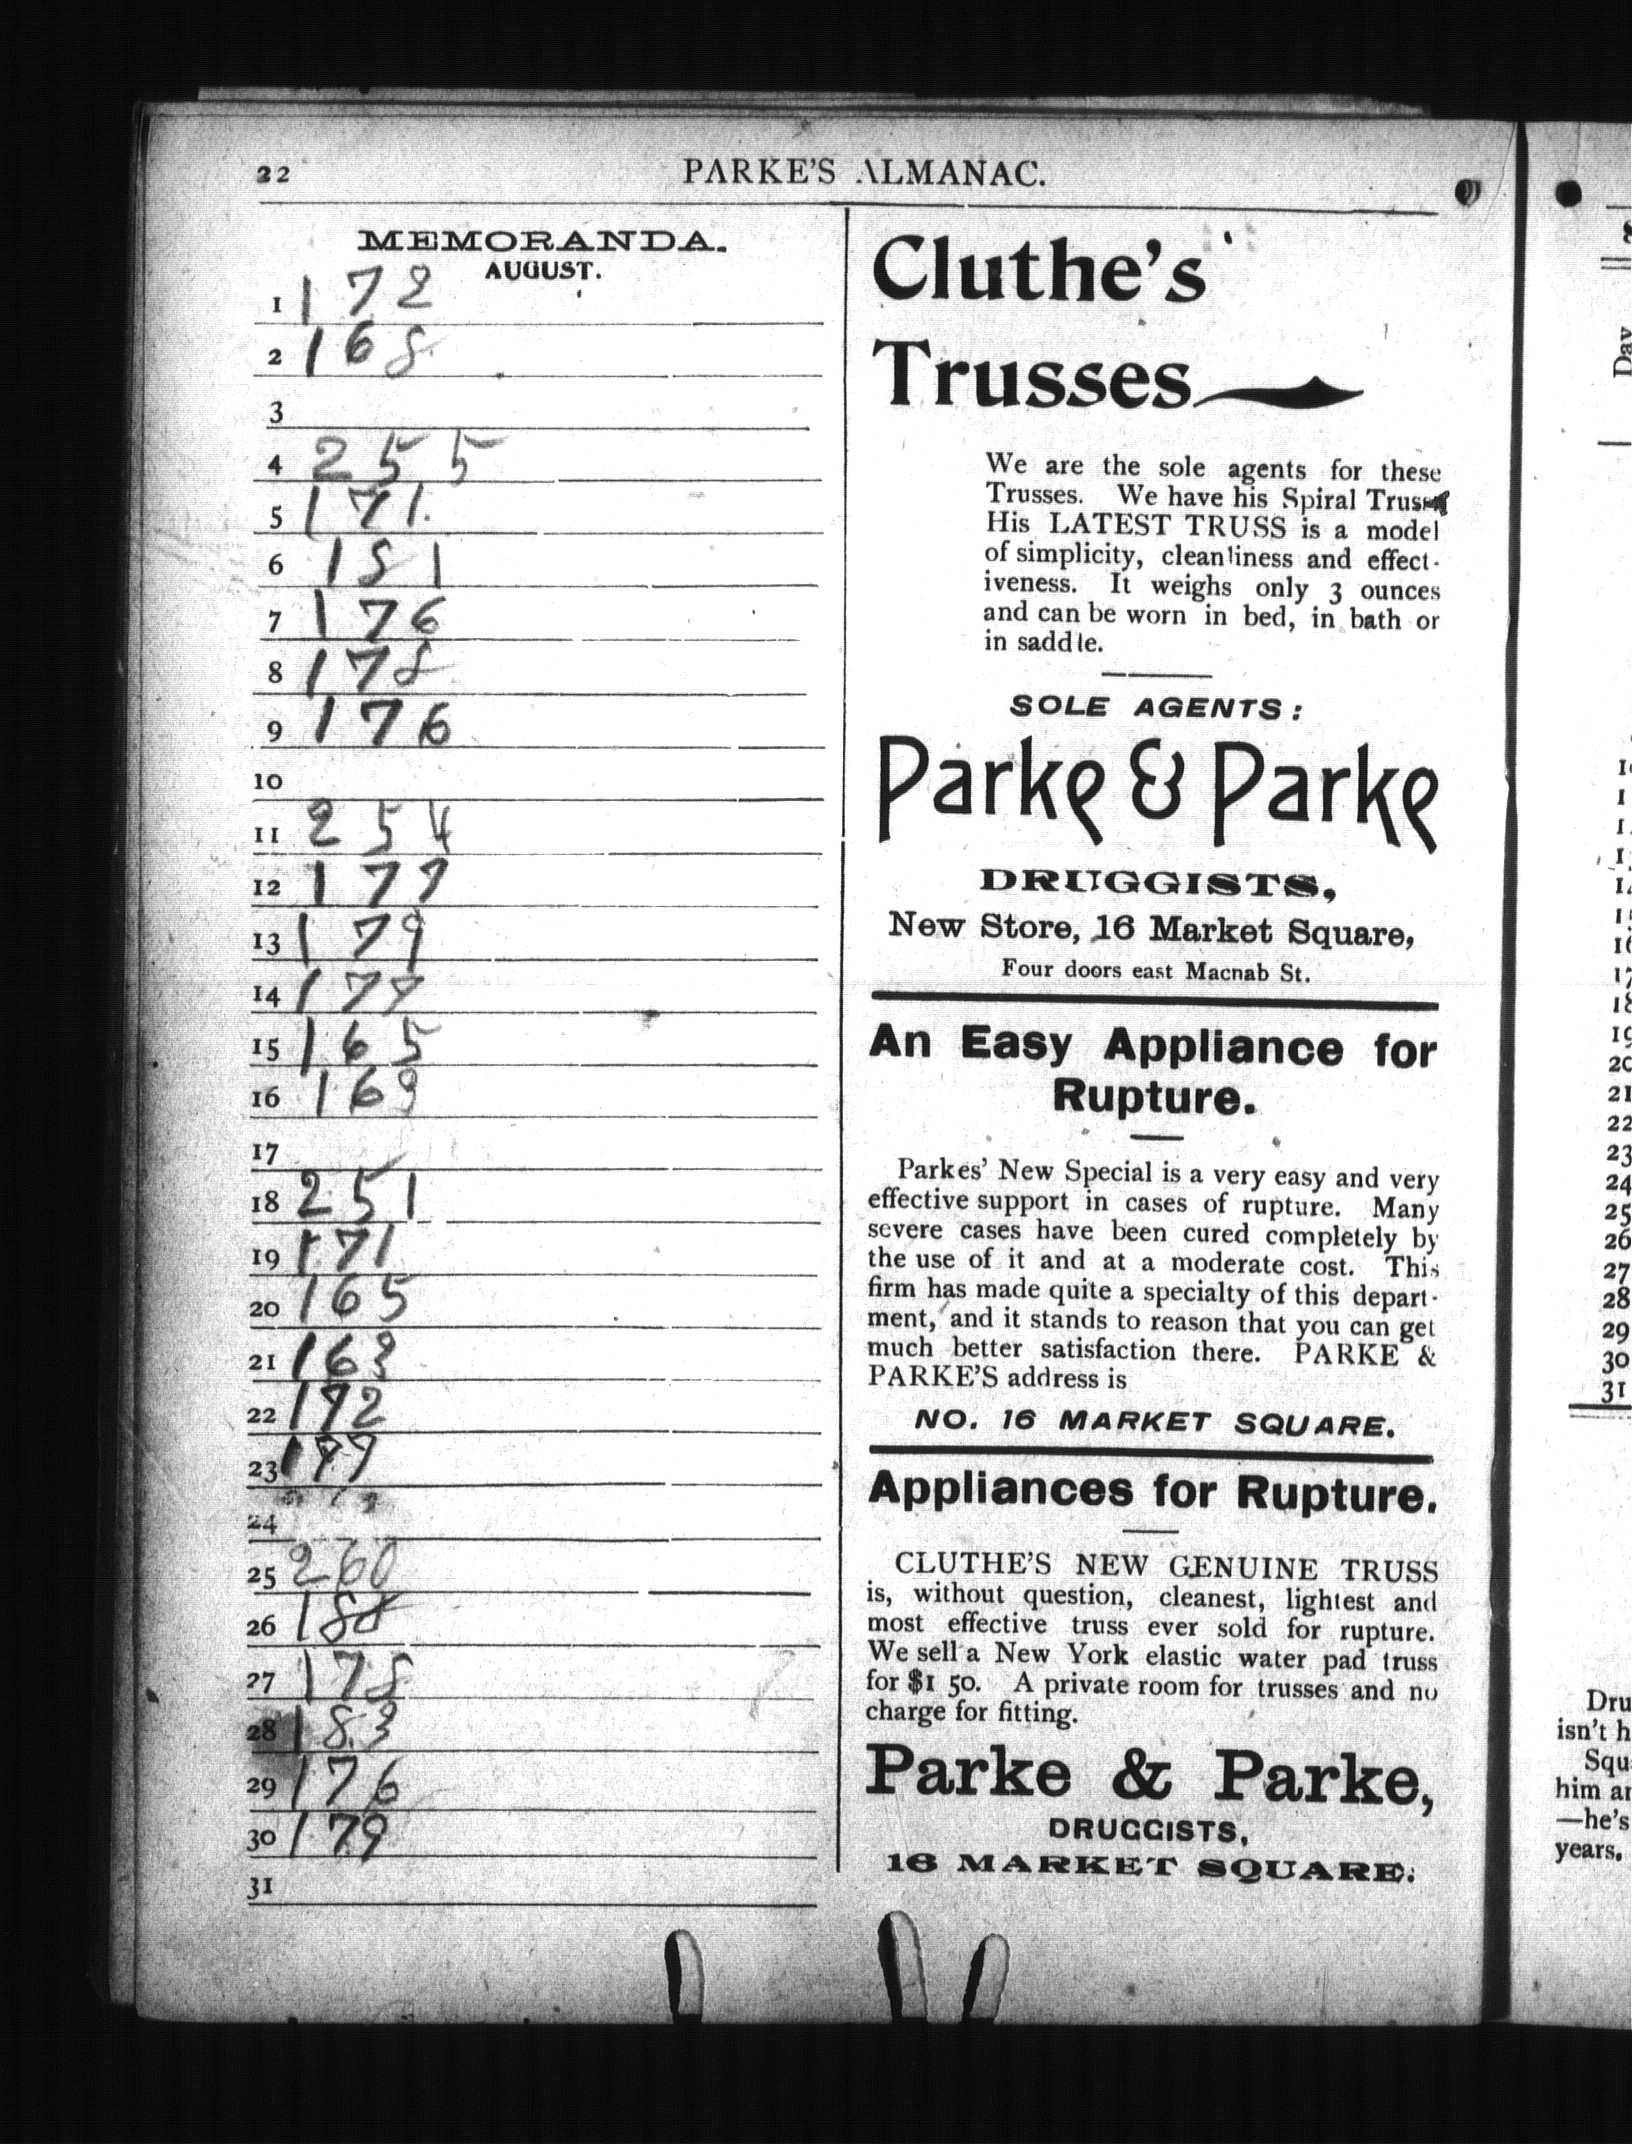 22
PARKE'S ALMANAC.
MEMORANDA.
AUGUST.
1 172
2 168
3
4 255
5 171
6 181
7 176
8 178
9 176
10
11 254
12 177
13 179
14 177
15 165
16 169
17
18 251
19 171
20 165
21 163
22 172
23 177
24
25 260
26 188
27 178
28 183
29 176
30 179
31
Cluthe's
Trusses
We are the sole agents for these
Trusses. We have his Spiral Truss
His LATEST TRUSS is a model
of simplicity, cleanliness and effect-
iveness. It weighs only 3 ounces
and can be worn in bed, in bath or
in saddle.
SOLE AGENTS:
Parke & Parke
DRUGGISTS,
New Store, 16 Market Square,
Four doors east Macnab St.
An Easy Appliance for
Rupture.
Parkes' New Special is a very easy and very
effective support in cases of rupture. Many
severe cases have been cured completely by
the use of it and at a moderate cost. This
firm has made quite a specialty of this depart-
ment, and it stands to reason that you can get
much better satisfaction there. PARKE &
PARKE'S address is
NO. 16 MARKET SQUARE.
Appliances for Rupture.
CLUTHE'S NEW GENUINE TRUSS
is, without question, cleanest, lightest and
most effective truss ever sold for rupture.
We sell a New York elastic water pad truss
for $1 50. A private room for trusses and no
charge for fitting.
Parke & Parke,
DRUGGISTS,
16 MARKET SQUARE.
Day
19
20
21
22
23
24
25
26
27
28
29
30
31
Dru
isn't h
Squ
him an
—he's
years.